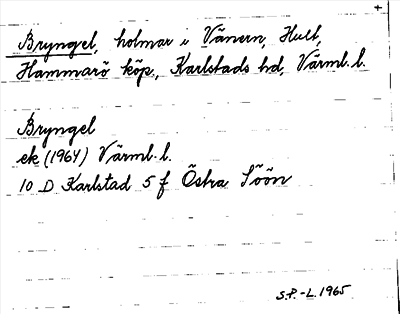 Bryngel, holmar i Vänern, Hult,
Hammarö köp., Karlstads hd, Värml. l.
Bryngel
ek (1964) Värml. l.
10 D Karlstad 5 f Östra Söön
S.P.-L. 1965